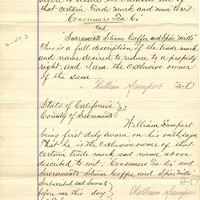 that certain Trade mark and name to wit.
Consumers Tea Co
and
Sacramento Steam Coffee and Spice Mills
this is a full description of the trade mark
and name desired to reduce to a property
right, and I am the exclusive owner
of the same
William
State of California
County of Sacramento
William
being first duly sworn on his oath says
that he is the exclusive owner of that
certain trade mark and name above
described to wit, Consumers Tea Co and
Sacramento Steam Coffee and Spice Mills
Subscribed and sworn to
before me this day
William